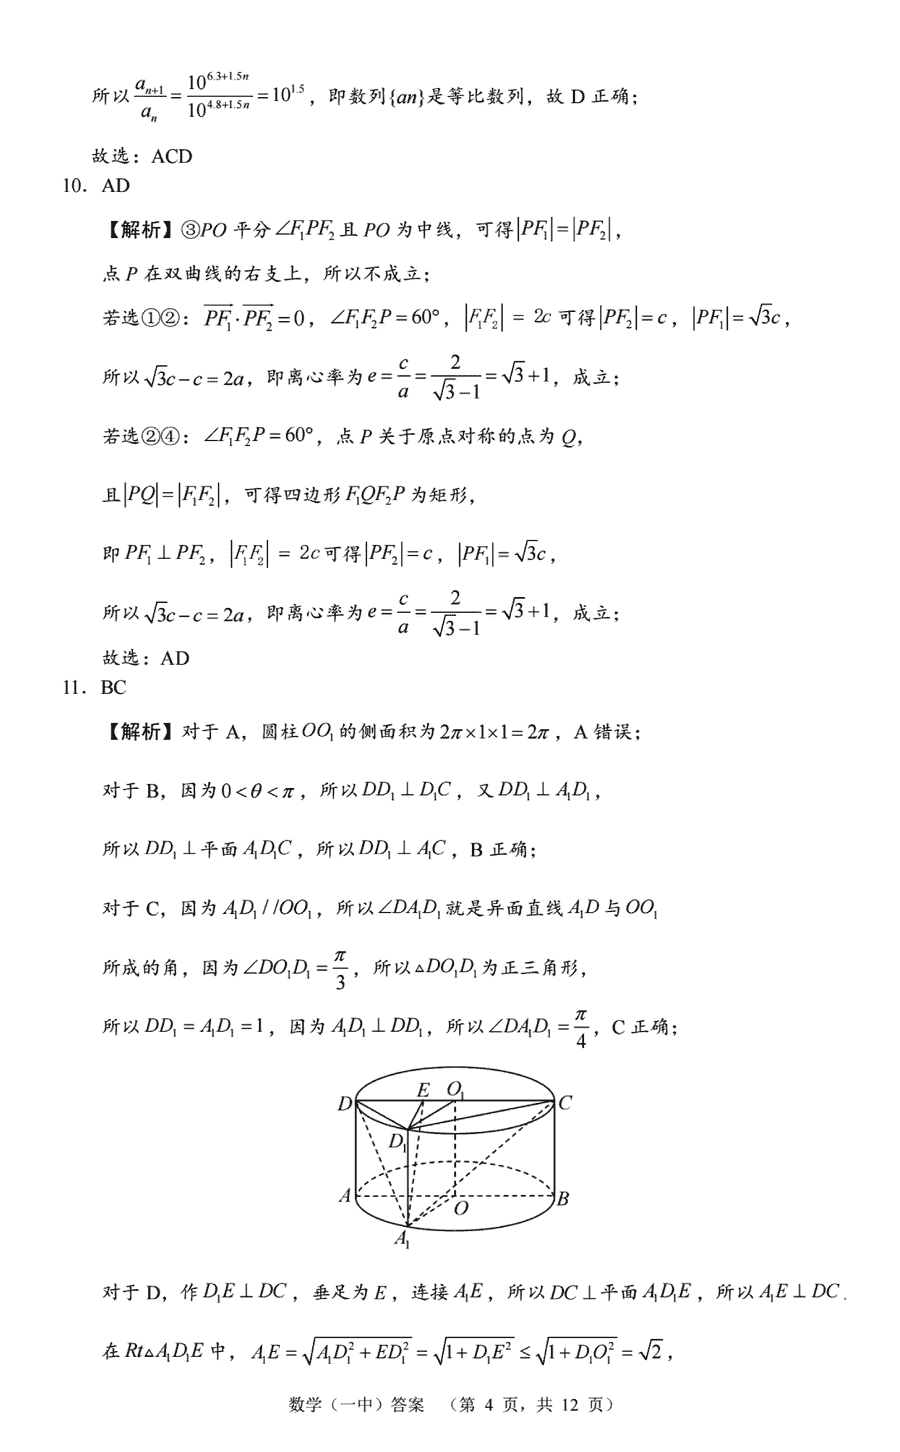 所以 $\frac{a_{n+1}}{a_n}=\frac{10^{6.3+1.5n}}{10^{4.8+1.5n}}=10^{1.5}$，即数列{an}是等比数列，故 D 正确；
故选：ACD
10．AD
【解析】③PO 平分∠F₁PF₂ 且 PO 为中线，可得|PF₁|=|PF₂|，
点 P 在双曲线的右支上，所以不成立；
若选①②：$\overrightarrow{PF_1}\cdot\overrightarrow{PF_2}=0$，∠F₁F₂P=60°，|F₁F₂| = 2c 可得|PF₂|=c，|PF₁|=√3c，
所以 √3c−c=2a，即离心率为 $e=\frac{c}{a}=\frac{2}{\sqrt{3}-1}=\sqrt{3}+1$，成立；
若选②④：∠F₁F₂P=60°，点 P 关于原点对称的点为 Q，
且|PQ|=|F₁F₂|，可得四边形 F₁QF₂P 为矩形，
即 PF₁⊥PF₂，|F₁F₂| = 2c 可得|PF₂|=c，|PF₁|=√3c，
所以 √3c−c=2a，即离心率为 $e=\frac{c}{a}=\frac{2}{\sqrt{3}-1}=\sqrt{3}+1$，成立；
故选：AD
11．BC
【解析】对于 A，圆柱 OO₁ 的侧面积为 2π×1×1=2π，A 错误；
对于 B，因为 0<θ<π，所以 DD₁⊥D₁C，又 DD₁⊥A₁D₁，
所以 DD₁⊥平面 A₁D₁C，所以 DD₁⊥A₁C，B 正确；
对于 C，因为 A₁D₁//OO₁，所以∠DA₁D₁ 就是异面直线 A₁D 与 OO₁
所成的角，因为∠DO₁D₁=$\frac{π}{3}$，所以△DO₁D₁ 为正三角形，
所以 DD₁=A₁D₁=1，因为 A₁D₁⊥DD₁，所以∠DA₁D₁=$\frac{π}{4}$，C 正确；
D E O₁ C
D₁
A O B
A₁
对于 D，作 D₁E⊥DC，垂足为 E，连接 A₁E，所以 DC⊥平面 A₁D₁E，所以 A₁E⊥DC.
在 Rt△A₁D₁E 中，$A_1E=\sqrt{A_1D_1^2+ED_1^2}=\sqrt{1+D_1E^2}\le\sqrt{1+D_1O_1^2}=\sqrt{2}$，
数学（一中）答案 （第 4 页，共 12 页）